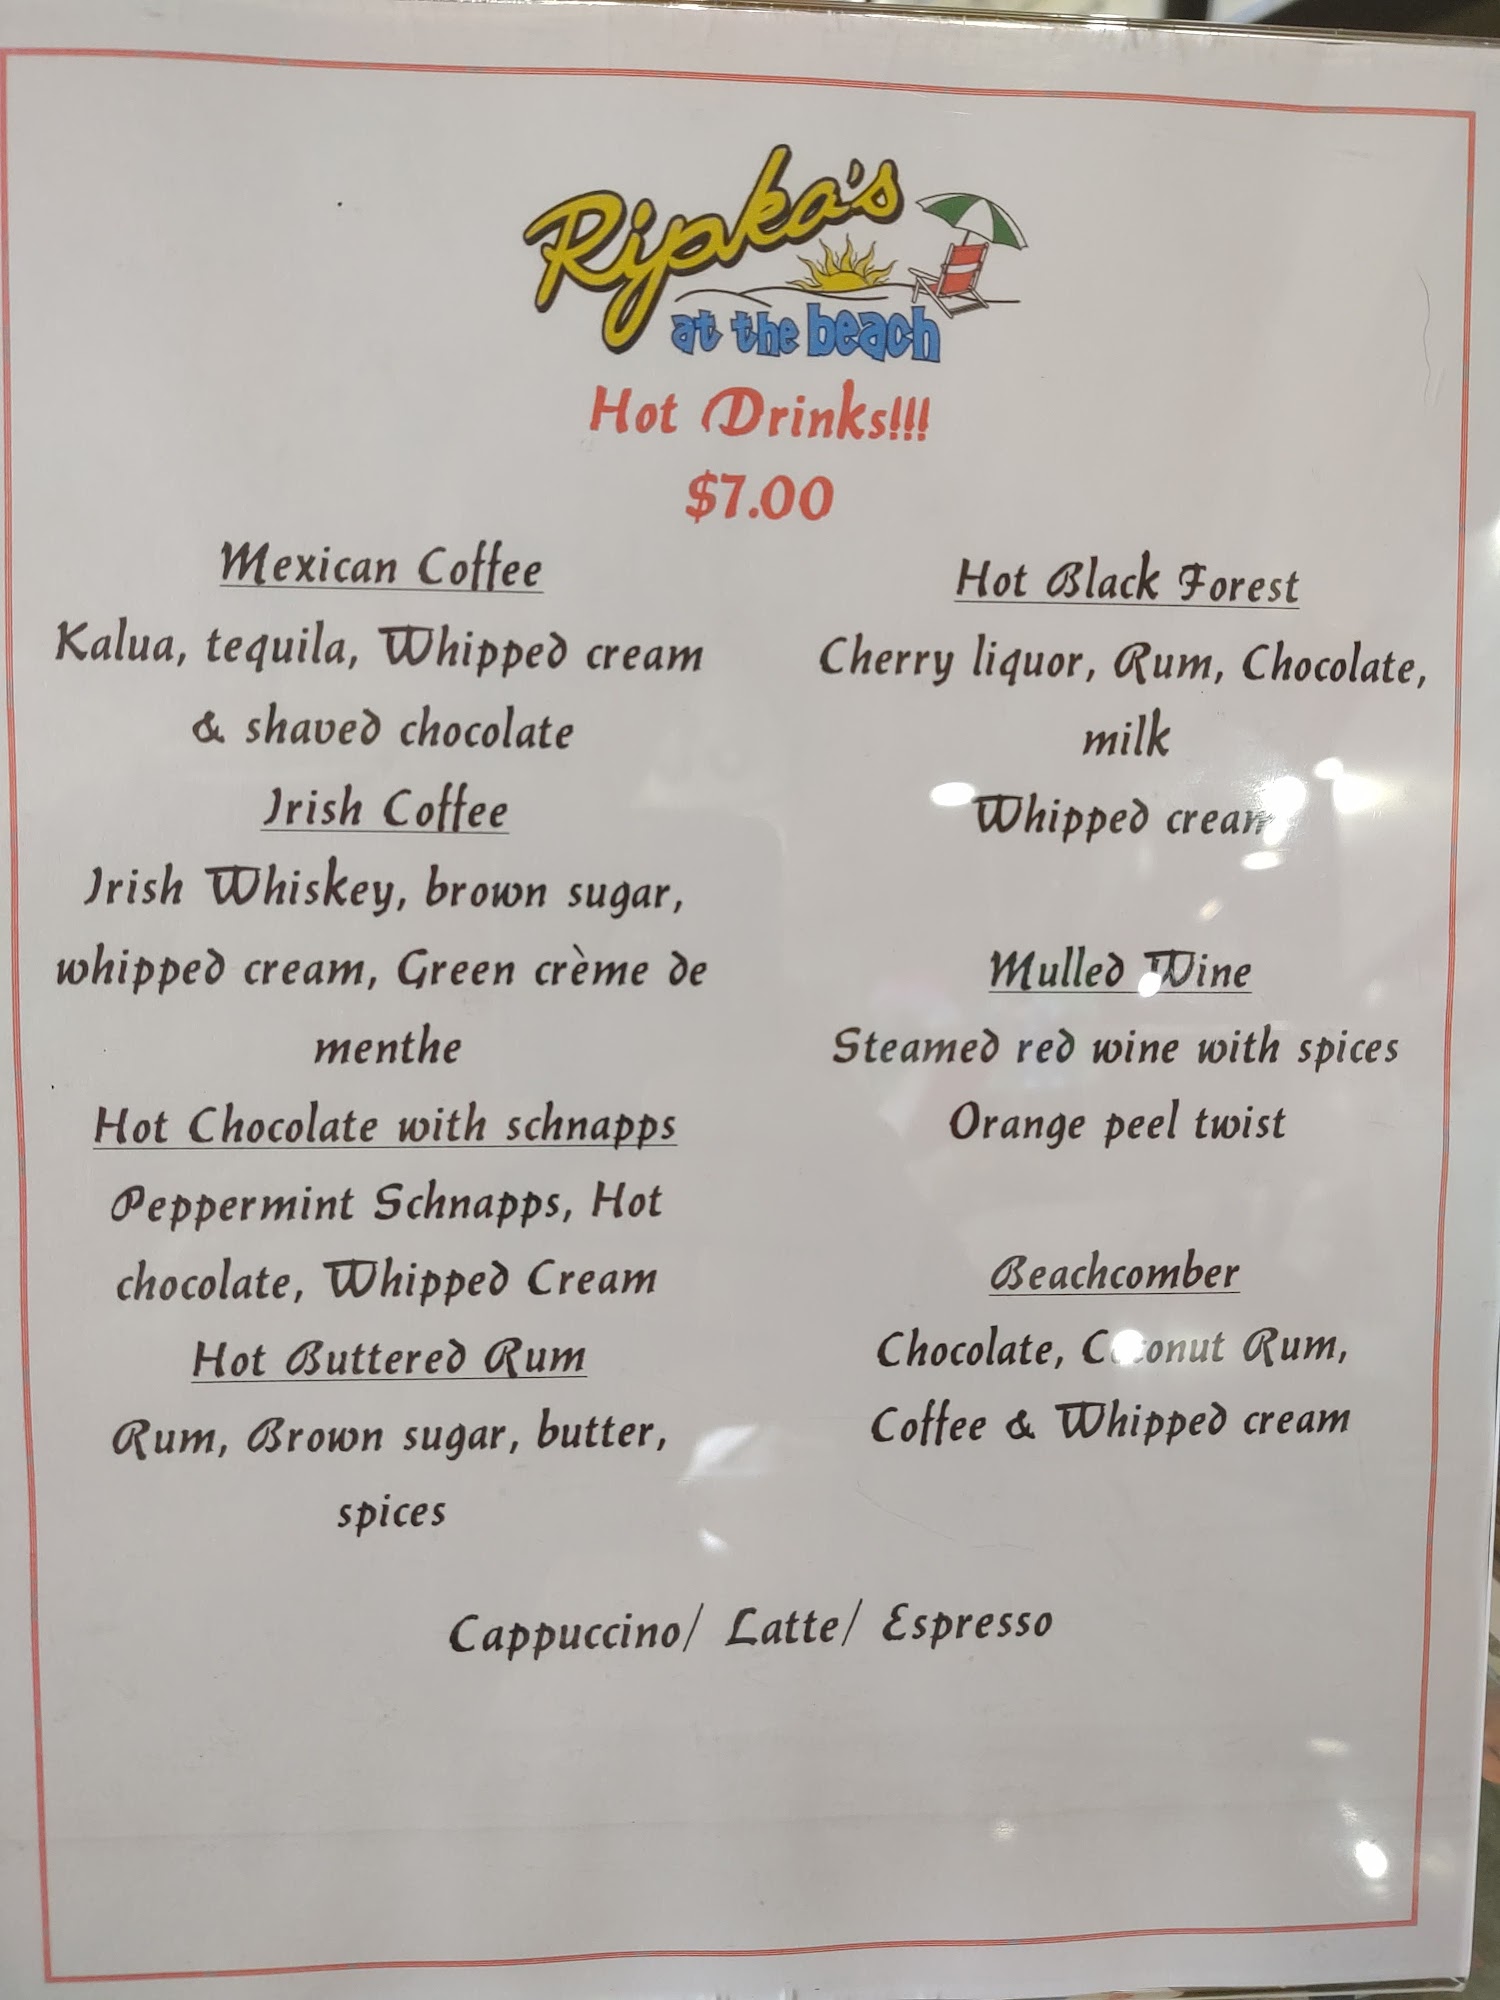 Ripka's
at the beach
Hot Drinks!!!
$7.00
Mexican Coffee
Kalua, tequila, Whipped cream
& shaved chocolate
Irish Coffee
Irish Whiskey, brown sugar,
whipped cream, Green crème de
menthe
Hot Chocolate with schnapps
Peppermint Schnapps, Hot
chocolate, Whipped Cream
Hot Buttered Rum
Rum, Brown sugar, butter,
spices
Hot Black Forest
Cherry liquor, Rum, Chocolate,
milk
Whipped cream
Mulled Wine
Steamed red wine with spices
Orange peel twist
Beachcomber
Chocolate, Coconut Rum,
Coffee & Whipped cream
Cappuccino/ Latte/ Espresso